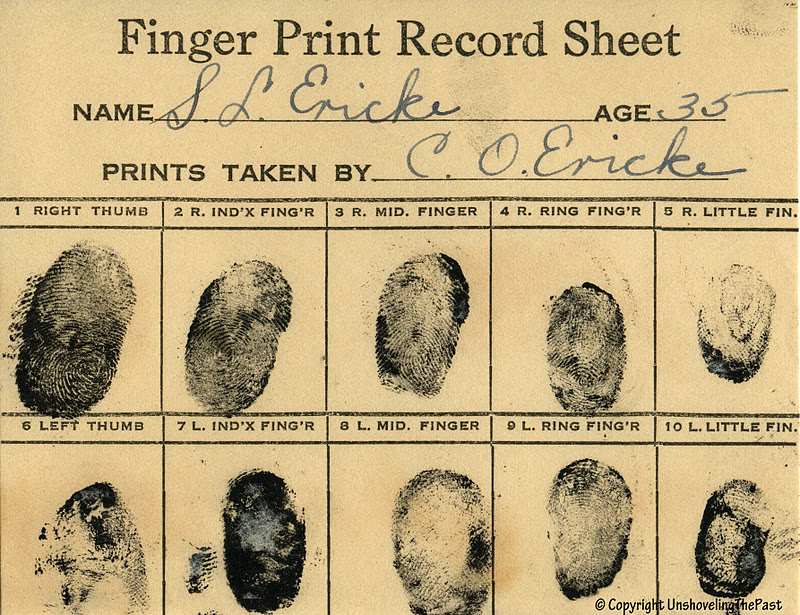 Finger Print Record Sheet
NAME S. L. Ericke AGE 35
PRINTS TAKEN BY C. O. Ericke
1 RIGHT THUMB 2 R. IND'X FING'R 3 R. MID. FINGER 4 R. RING FING'R 5 R. LITTLE FIN.
6 LEFT THUMB 7 L. IND'X FING'R 8 L. MID. FINGER 9 L. RING FING'R 10 L. LITTLE FIN.
© Copyright UnshovelingThePast